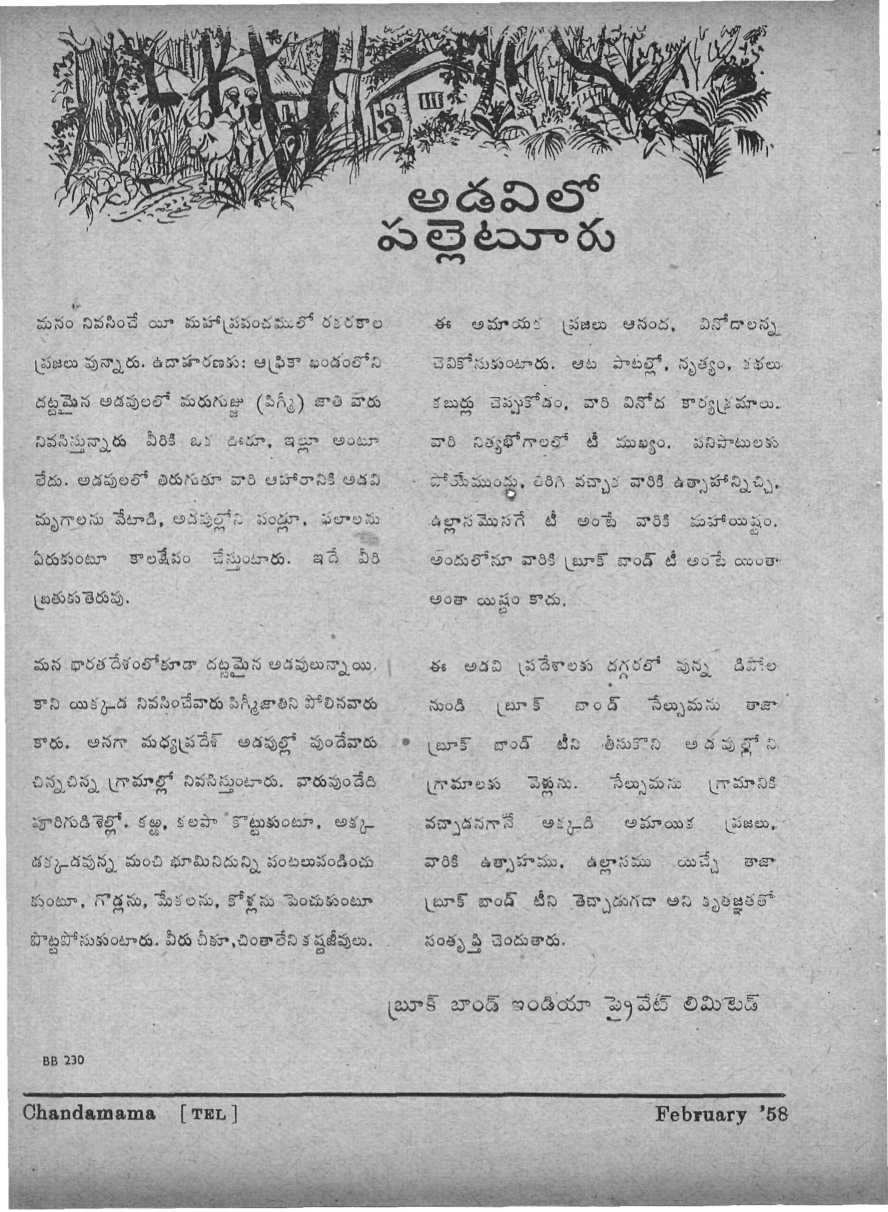 అడవిలో
పల్లెటూరు
మనం నివసించే యీ మహాప్రపంచములో రకరకాల
ప్రజలు వున్నారు. ఉదాహరణకు: ఆఫ్రికా ఖండంలోని
దట్టమైన అడవులలో మరుగుజ్జు (పిగ్మీ) జాతి వారు
నివసిస్తున్నారు వీరికి ఒక ఊరూ, ఇల్లూ అంటూ
లేదు. అడవులలో తిరుగుతూ వారి ఆహారానికి అడవి
మృగాలను వేటాడి, అడవుల్లోని పండ్లూ, ఫలాలను
ఏరుకుంటూ కాలక్షేపం చేస్తుంటారు. ఇదే వీరి
బ్రతుకు తెరువు.
మన భారతదేశంలోకూడా దట్టమైన అడవులున్నాయి.
కాని యిక్కడ నివసించేవారు పిగ్మీజాతిని పోలినవారు
కారు. అనగా మధ్యప్రదేశ్ అడవుల్లో వుండేవారు
చిన్నచిన్న గ్రామాల్లో నివసిస్తుంటారు. వారువుండేది
పూరిగుడిశెల్లో. కఱ్ఱ, కలపా కొట్టుకుంటూ, అక్క
డక్కడవున్న మంచి భూమినిదున్ని పంటలుపండించు
కుంటూ, గొడ్లను, మేకలను, కోళ్లను పెంచుకుంటూ
పొట్టపోసుకుంటారు. వీరు చీకూ,చింతాలేని కష్టజీవులు.
ఈ అమాయక ప్రజలు ఆనంద, వినోదాలన్న
చెవికోసుకుంటారు. ఆట పాటల్లో, నృత్యం, కథలు
కబుర్లు చెప్పుకోడం, వారి వినోద కార్యక్రమాలు.
వారి నిత్యభోగాలలో టీ ముఖ్యం. పనిపాటులకు
పోయేముందు, తిరిగి వచ్చాక వారికి ఉత్సాహాన్నిచ్చి,
ఉల్లాసమొసగే టీ అంటే వారికి మహాయిష్టం.
అందులోనూ వారికి బ్రూక్ బాండ్ టీ అంటే యింతా
అంతా యిష్టం కాదు.
ఈ అడవి ప్రదేశాలకు దగ్గరలో వున్న డిపోల
నుండి బ్రూక్ బాండ్ సేల్సుమను తాజా
బ్రూక్ బాండ్ టీని తీసుకొని అడవుల్లోని
గ్రామాలకు వెళ్లును. సేల్సుమను గ్రామానికి
వచ్చాడనగానే అక్కడి అమాయిక ప్రజలు,
వారికి ఉత్సాహము, ఉల్లాసము యిచ్చే తాజా
బ్రూక్ బాండ్ టీని తెచ్చాడుగదా అని కృతజ్ఞతతో
సంతృప్తి చెందుతారు.
బ్రూక్ బాండ్ ఇండియా ప్రైవేట్ లిమిటెడ్
BB 230
Chandamama [TEL]
February '58